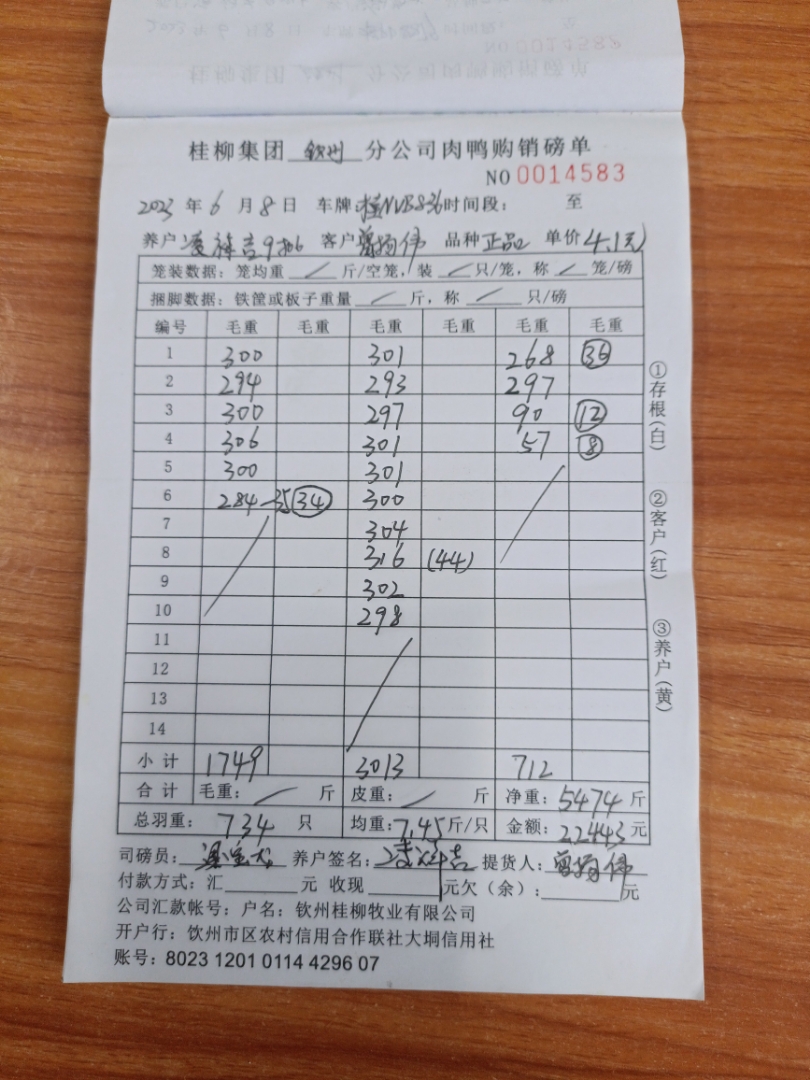 桂柳集团 钦州 分公司肉鸭购销磅单
NO 0014583
2023 年 6 月 8 日 车牌:桂NVB836 时间段: 至
养户 凌祥吉9 客户 曾扬伟 品种 正品 单价 4.1元
笼装数据：笼均重 / 斤/空笼，装 / 只/笼，称 / 笼/磅
捆脚数据：铁筐或板子重量 / 斤，称 / 只/磅
编号 毛重 毛重 毛重 毛重 毛重 毛重
1 300 301 268 36
2 294 293 297
3 300 297 90 12
4 306 301 57 8
5 300 301
6 284-35 34 300
7 304
8 316 (44)
9 302
10 298
11
12
13
14
小计 1749 3013 712
合计 毛重： / 斤 皮重： / 斤 净重：5474 斤
总羽重： 734 只 均重：7.45 斤/只 金额：22443 元
司磅员： 养户签名：凌祥吉 提货人：曾扬伟
付款方式：汇 元 收现 元欠（余）： 元
公司汇款帐号：户名：钦州桂柳牧业有限公司
开户行：钦州市区农村信用合作联社大垌信用社
账号：8023 1201 0114 4296 07
①存根(白)
②客户(红)
③养户(黄)